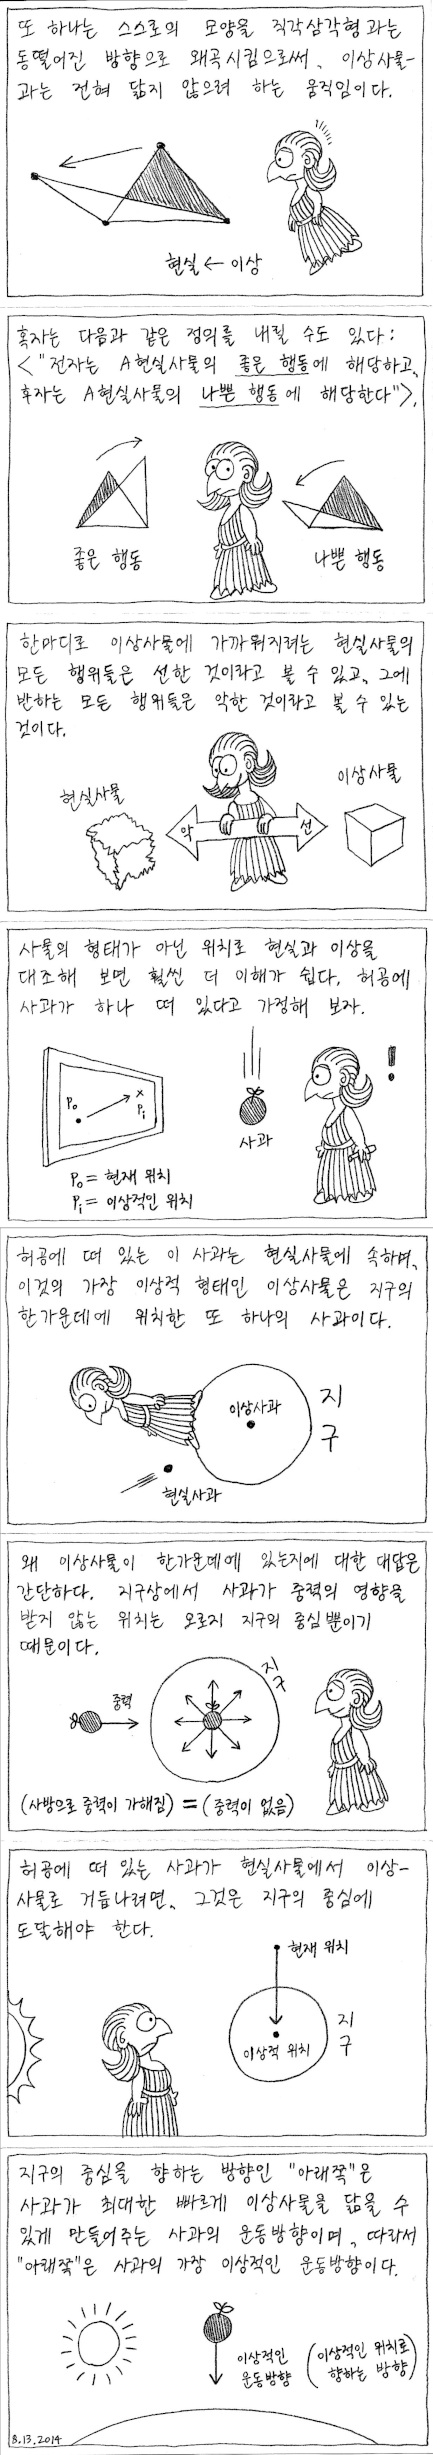 또 하나는 스스로의 모양을 직각삼각형과는
동떨어진 방향으로 왜곡시킴으로써, 이상사물-
과는 전혀 닮지 않으려 하는 움직임이다.
현실 ← 이상
혹자는 다음과 같은 정의를 내릴 수도 있다:
<"전자는 A현실사물의 좋은 행동에 해당하고,
후자는 A현실사물의 나쁜 행동에 해당한다">.
좋은 행동
나쁜 행동
한마디로 이상사물에 가까워지려는 현실사물의
모든 행위들은 선한 것이라고 볼 수 있고, 그에
반하는 모든 행위들은 악한 것이라고 볼 수 있는
것이다.
현실사물
이상사물
악
선
사물의 형태가 아닌 위치로 현실과 이상을
대조해 보면 훨씬 더 이해가 쉽다. 허공에
사과가 하나 떠 있다고 가정해 보자.
P₀
x
Pᵢ
사과
!
P₀ = 현재 위치
Pᵢ = 이상적인 위치
허공에 떠 있는 이 사과는 현실사물에 속하며,
이것의 가장 이상적 형태인 이상사물은 지구의
한가운데에 위치한 또 하나의 사과이다.
이상사과
지
구
현실사과
왜 이상사물이 한가운데에 있는지에 대한 대답은
간단하다. 지구상에서 사과가 중력의 영향을
받지 않는 위치는 오로지 지구의 중심뿐이기
때문이다.
지
구
중력
(사방으로 중력이 가해짐) = (중력이 없음)
허공에 떠 있는 사과가 현실사물에서 이상-
사물로 거듭나려면, 그것은 지구의 중심에
도달해야 한다.
현재 위치
이상적 위치
지
구
지구의 중심을 향하는 방향인 "아래쪽"은
사과가 최대한 빠르게 이상사물을 닮을 수
있게 만들어주는 사과의 운동방향이며, 따라서
"아래쪽"은 사과의 가장 이상적인 운동방향이다.
이상적인
운동방향
(이상적인 위치로
향하는 방향)
8.13.2014